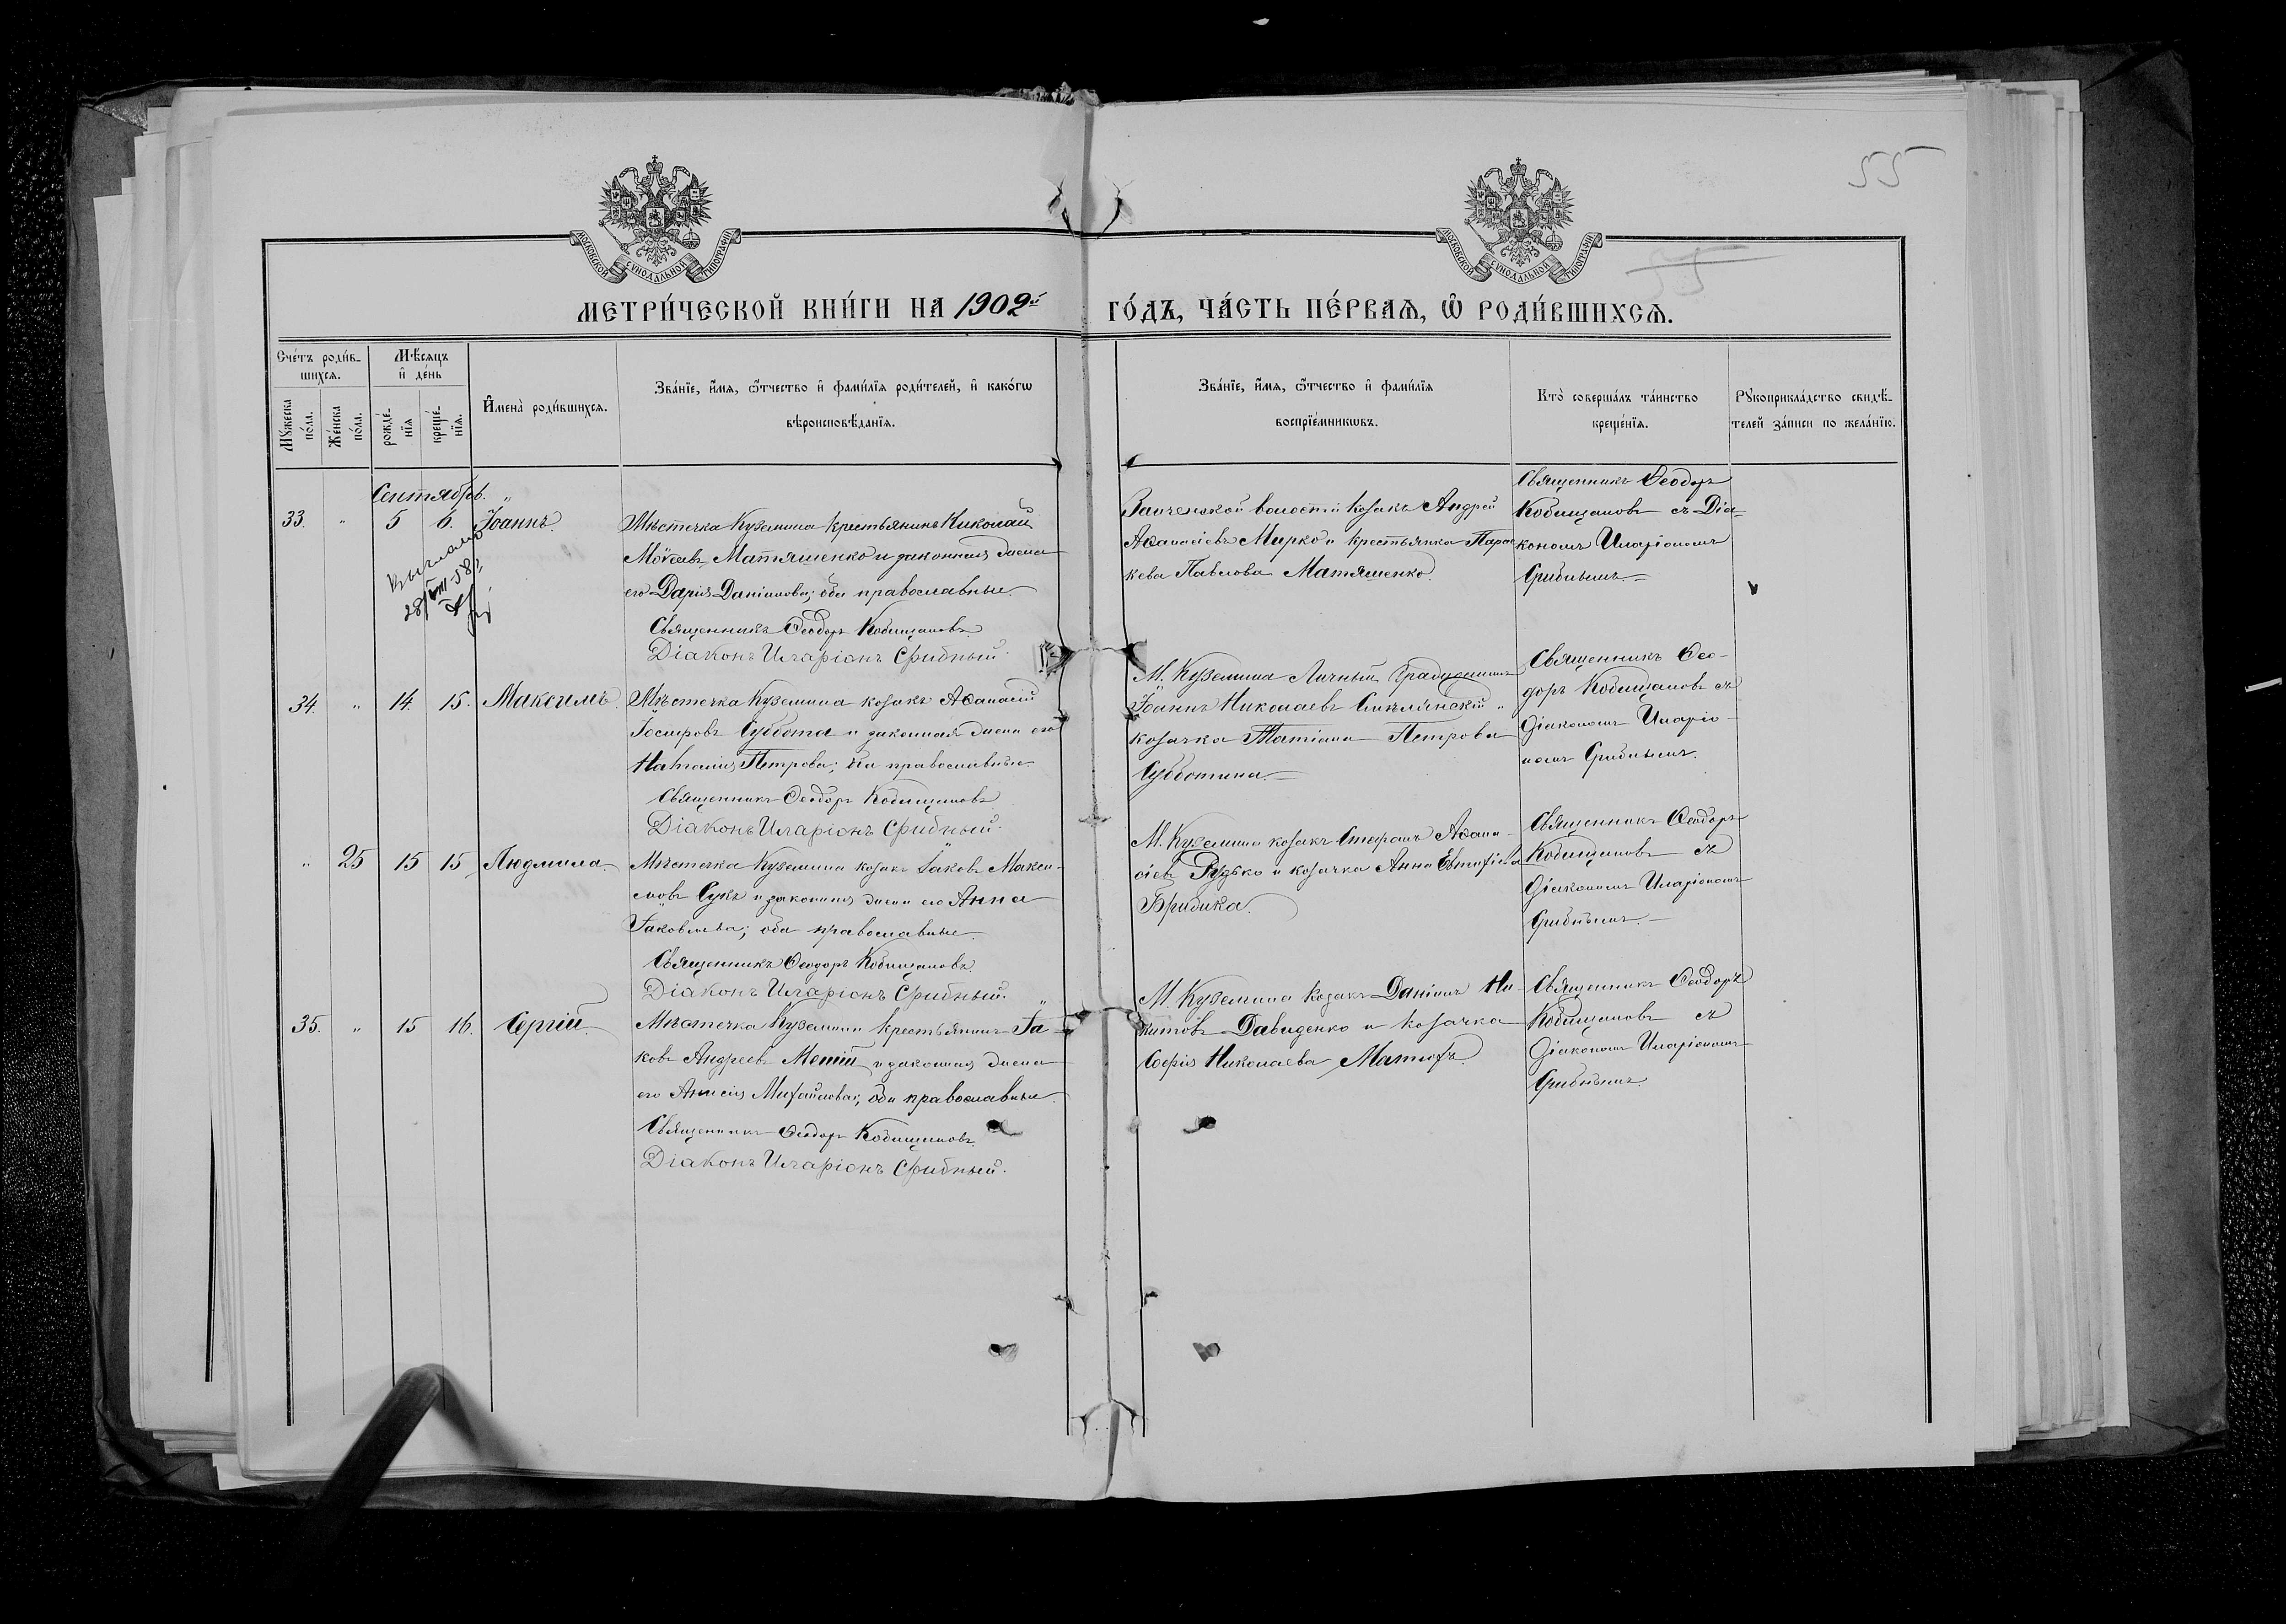 55
МОСКОВСКОЙ СѴНОДАЛЬНОЙ ТИПОГРАФІИ
МОСКОВСКОЙ СѴНОДАЛЬНОЙ ТИПОГРАФІИ
55
МЕТРИ́ЧЕСКОЙ КНИ́ГИ НА 1902й ГО́ДЪ, ЧА́СТЬ ПЕ́РВАѦ, Ѡ РОДИ́ВШИХСѦ.
Сче́тъ роди́в-
шихсѧ.
Мꙋ́жеска
по́ла.
Же́нска
по́ла.
Мѣ́сѧцъ
и҆ де́нь
рожде́-
нїѧ
креще́-
нїѧ.
И҆мена̀ роди́вшихсѧ.
Зва́нїе, и҆́мѧ, ѻ҆́тчество и҆ фами́лїѧ роди́телей, и҆ како́гѡ
вѣроисповѣ́данїѧ.
Зва́нїе, и҆́мѧ, ѻ҆́тчество и҆ фами́лїѧ
воспрїе́мникѡвъ.
Кто̀ соверша́лъ та́инство
креще́нїѧ.
Рꙋкоприкла́дство свидѣ́-
телей за́писи по жела́нїю.
Сентябрь.
33. " 5 6. Іоаннъ.
Мѣстечка Куземина крестьянинъ Николай
Матяшенко и законная жена
его Дарія Даніилова; оба православные.
Священникъ Ѳеодоръ Кобищановъ
Діаконъ Иларіонъ Срибный.
28/VIII-58г
волости козакъ Андрей
Аѳанасіевъ Мирко и крестьянка Парас
кева Павлова Матяшенко.
Священникъ Ѳеодоръ
Кобищановъ съ Діа-
кономъ Иларіономъ
Срибнымъ.
34. " 14. 15. Максимъ.
Мѣстечка Куземина козакъ Аѳанасій
Суббота и законная жена его
Наталія Петрова; оба православные.
Священникъ Ѳеодоръ Кобищановъ
Діаконъ Иларіонъ Срибный.
М. Куземина Личный
Іоаннъ Николаевъ и
козачка Татіана Петрова
Субботина.
Священникъ Ѳео-
доръ Кобищановъ съ
діакономъ Иларіо-
номъ Срибнымъ.
" 25 15 15 Людмила.
Мѣстечка Куземина козакъ Іаковъ Макси-
мовъ Сукъ и законная жена его Анна
Іаковлева; оба православные.
Священникъ Ѳеодоръ Кобищановъ
Діаконъ Иларіонъ Срибный.
М. Куземина козакъ Стефанъ Аѳана-
сіевъ Рудько и козачка Анна Евтифіева
Бридика.
Священникъ Ѳеодоръ
Кобищановъ съ
діакономъ Иларіономъ
Срибнымъ.
35. " 15 16. Сергій.
Мѣстечка Куземина крестьянинъ Іа-
ковъ Андреевъ и законная жена
его Анисія Михайлова; оба православные.
Священникъ Ѳеодоръ Кобищановъ
Діаконъ Иларіонъ Срибный.
М. Куземина козакъ Даніилъ Ни-
китовъ Давиденко и козачка
Софія Николаева
Священникъ Ѳеодоръ
Кобищановъ съ
діакономъ Иларіономъ
Срибнымъ